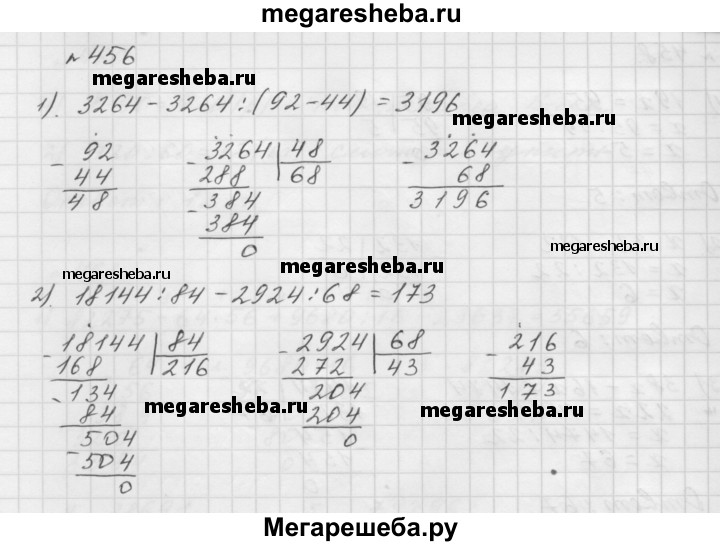 megaresheba.ru
№ 456
megaresheba.ru
1). 3264 - 3264 : (92 - 44) = 3196
megaresheba.ru
- 92 - 3264 | 48 - 3264
44 288 68 68
48 - 384 3196
384
0
megaresheba.ru megaresheba.ru megaresheba.ru
2). 18144 : 84 - 2924 : 68 = 173
- 18144 | 84 - 2924 | 68 - 216
168 216 272 43 43
- 134 204 173
84 204
megaresheba.ru megaresheba.ru
504 0
- 504
0
Мегарешеба.ру